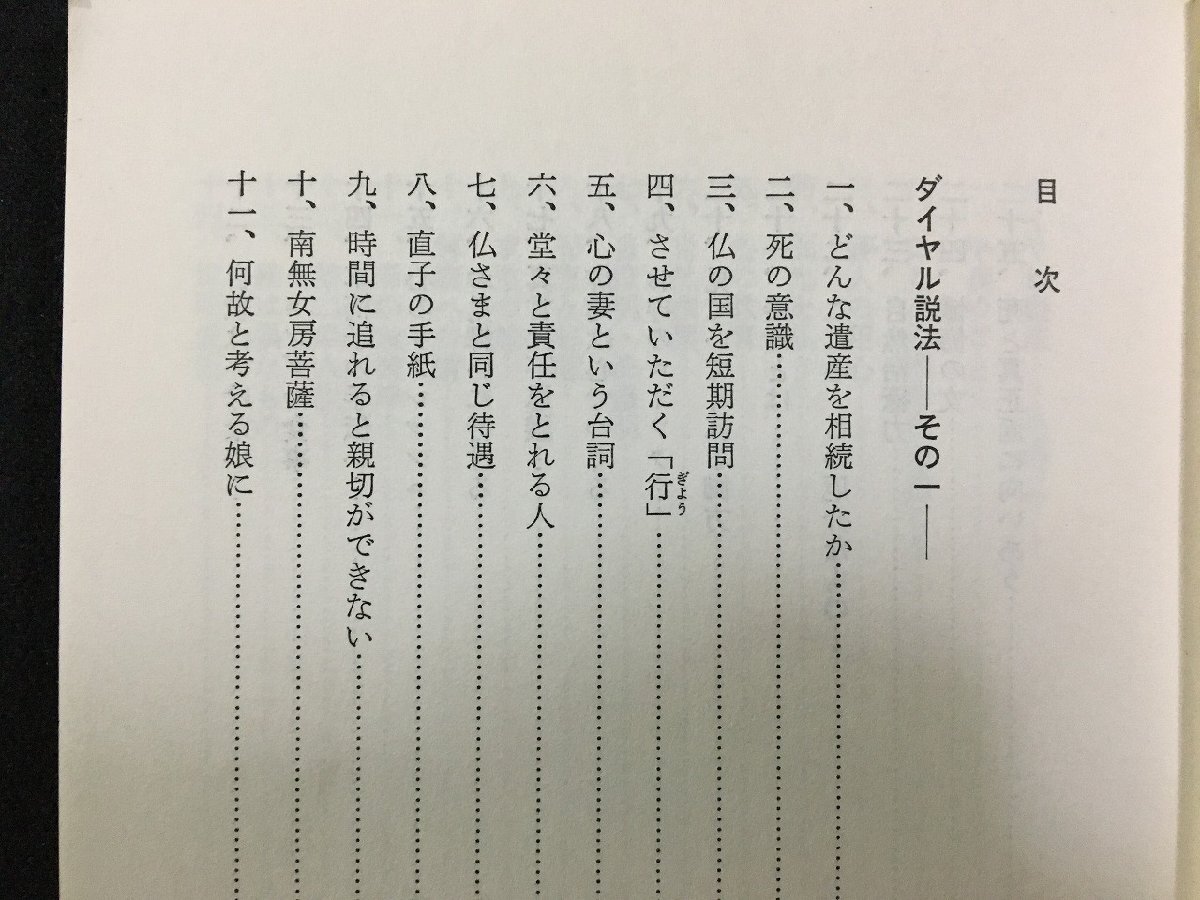 目次
ダイヤル説法——その一——
一、どんな遺産を相続したか…………
二、死の意識…………
三、仏の国を短期訪問…………
四、させていただく「行」…………
ぎょう
五、心の妻という台詞…………
六、堂々と責任をとれる人…………
七、仏さまと同じ待遇…………
八、直子の手紙…………
九、時間に追れると親切ができない…………
十、南無女房菩薩…………
十一、何故と考える娘に…………